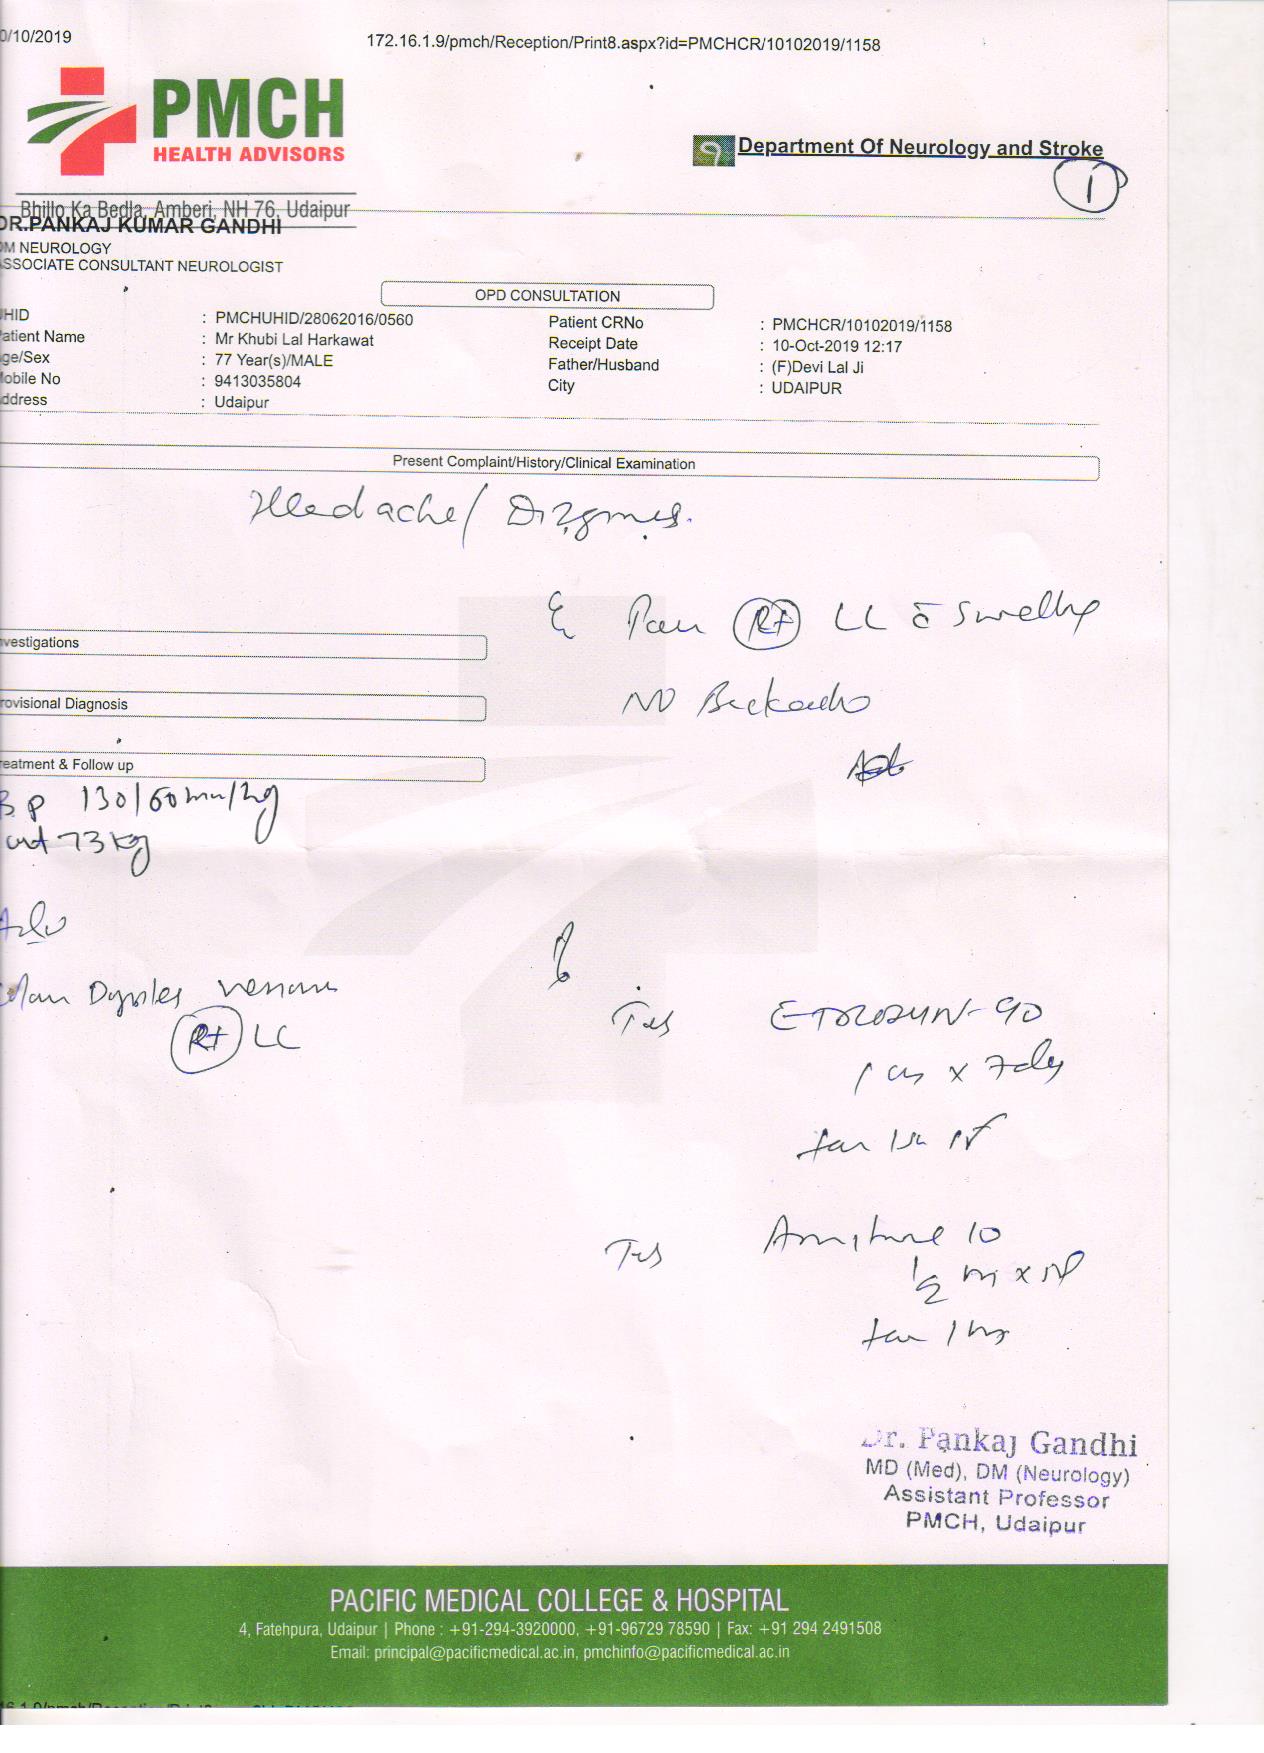 0/10/2019
172.16.1.9/pmch/Reception/Print8.aspx?id=PMCHCR/10102019/1158
PMCH
HEALTH ADVISORS
Department Of Neurology and Stroke
1
Bhillo Ka Bedla, Amberi, NH 76, Udaipur
DR.PANKAJ KUMAR GANDHI
DM NEUROLOGY
ASSOCIATE CONSULTANT NEUROLOGIST
OPD CONSULTATION
UHID : PMCHUHID/28062016/0560 Patient CRNo : PMCHCR/10102019/1158
Patient Name : Mr Khubi Lal Harkawat Receipt Date : 10-Oct-2019 12:17
Age/Sex : 77 Year(s)/MALE Father/Husband : (F)Devi Lal Ji
Mobile No : 9413035804 City : UDAIPUR
Address : Udaipur
Present Complaint/History/Clinical Examination
Headache/
Pain Rt LL c̄ Swelling
Investigations
No Backache
Provisional Diagnosis
Treatment & Follow up
BP 130/60mm/hg
wt 73kg
Adv
venous
Rt LL
Tab
x 7 day
Tab 10
1/2
Dr. Pankaj Gandhi
MD (Med), DM (Neurology)
Assistant Professor
PMCH, Udaipur
PACIFIC MEDICAL COLLEGE & HOSPITAL
4, Fatehpura, Udaipur | Phone : +91-294-3920000, +91-96729 78590 | Fax: +91 294 2491508
Email: principal@pacificmedical.ac.in, pmchinfo@pacificmedical.ac.in